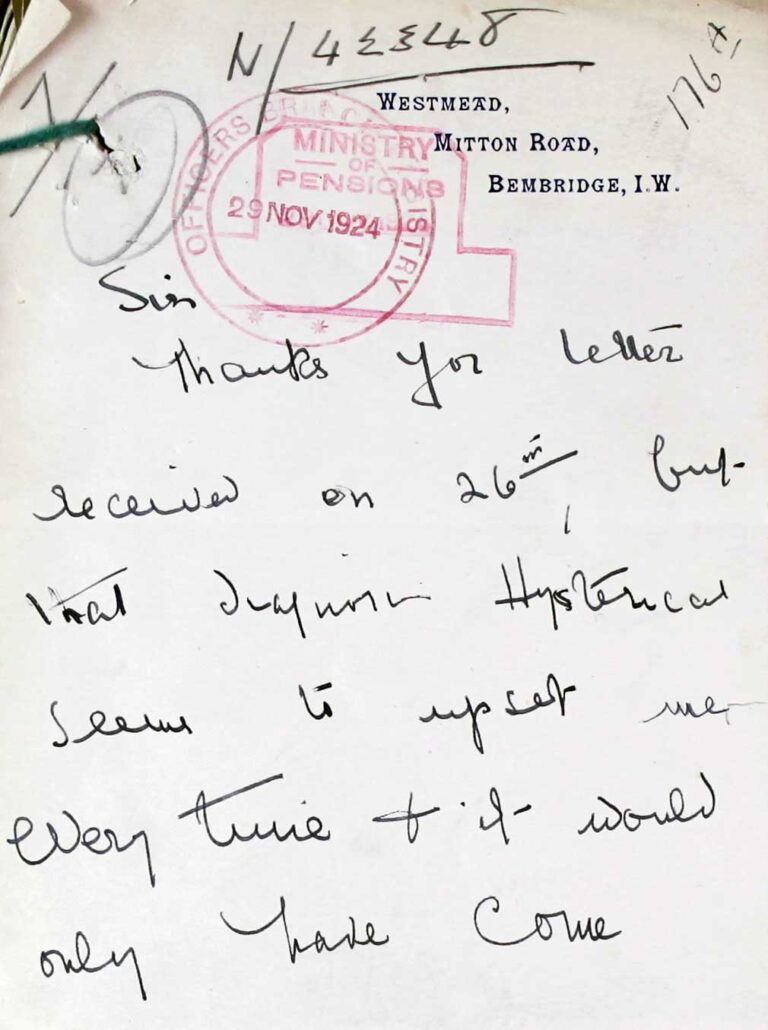 N/42348
176A
WESTMEAD,
MITTON ROAD,
BEMBRIDGE, I.W.
OFFICERS BRANCH REGISTRY
MINISTRY
OF
PENSIONS
29 NOV 1924
Sir
Thanks for letter
received on 26th, but
that diagnosis Hysterical
seems to upset me
every time & it would
only have come